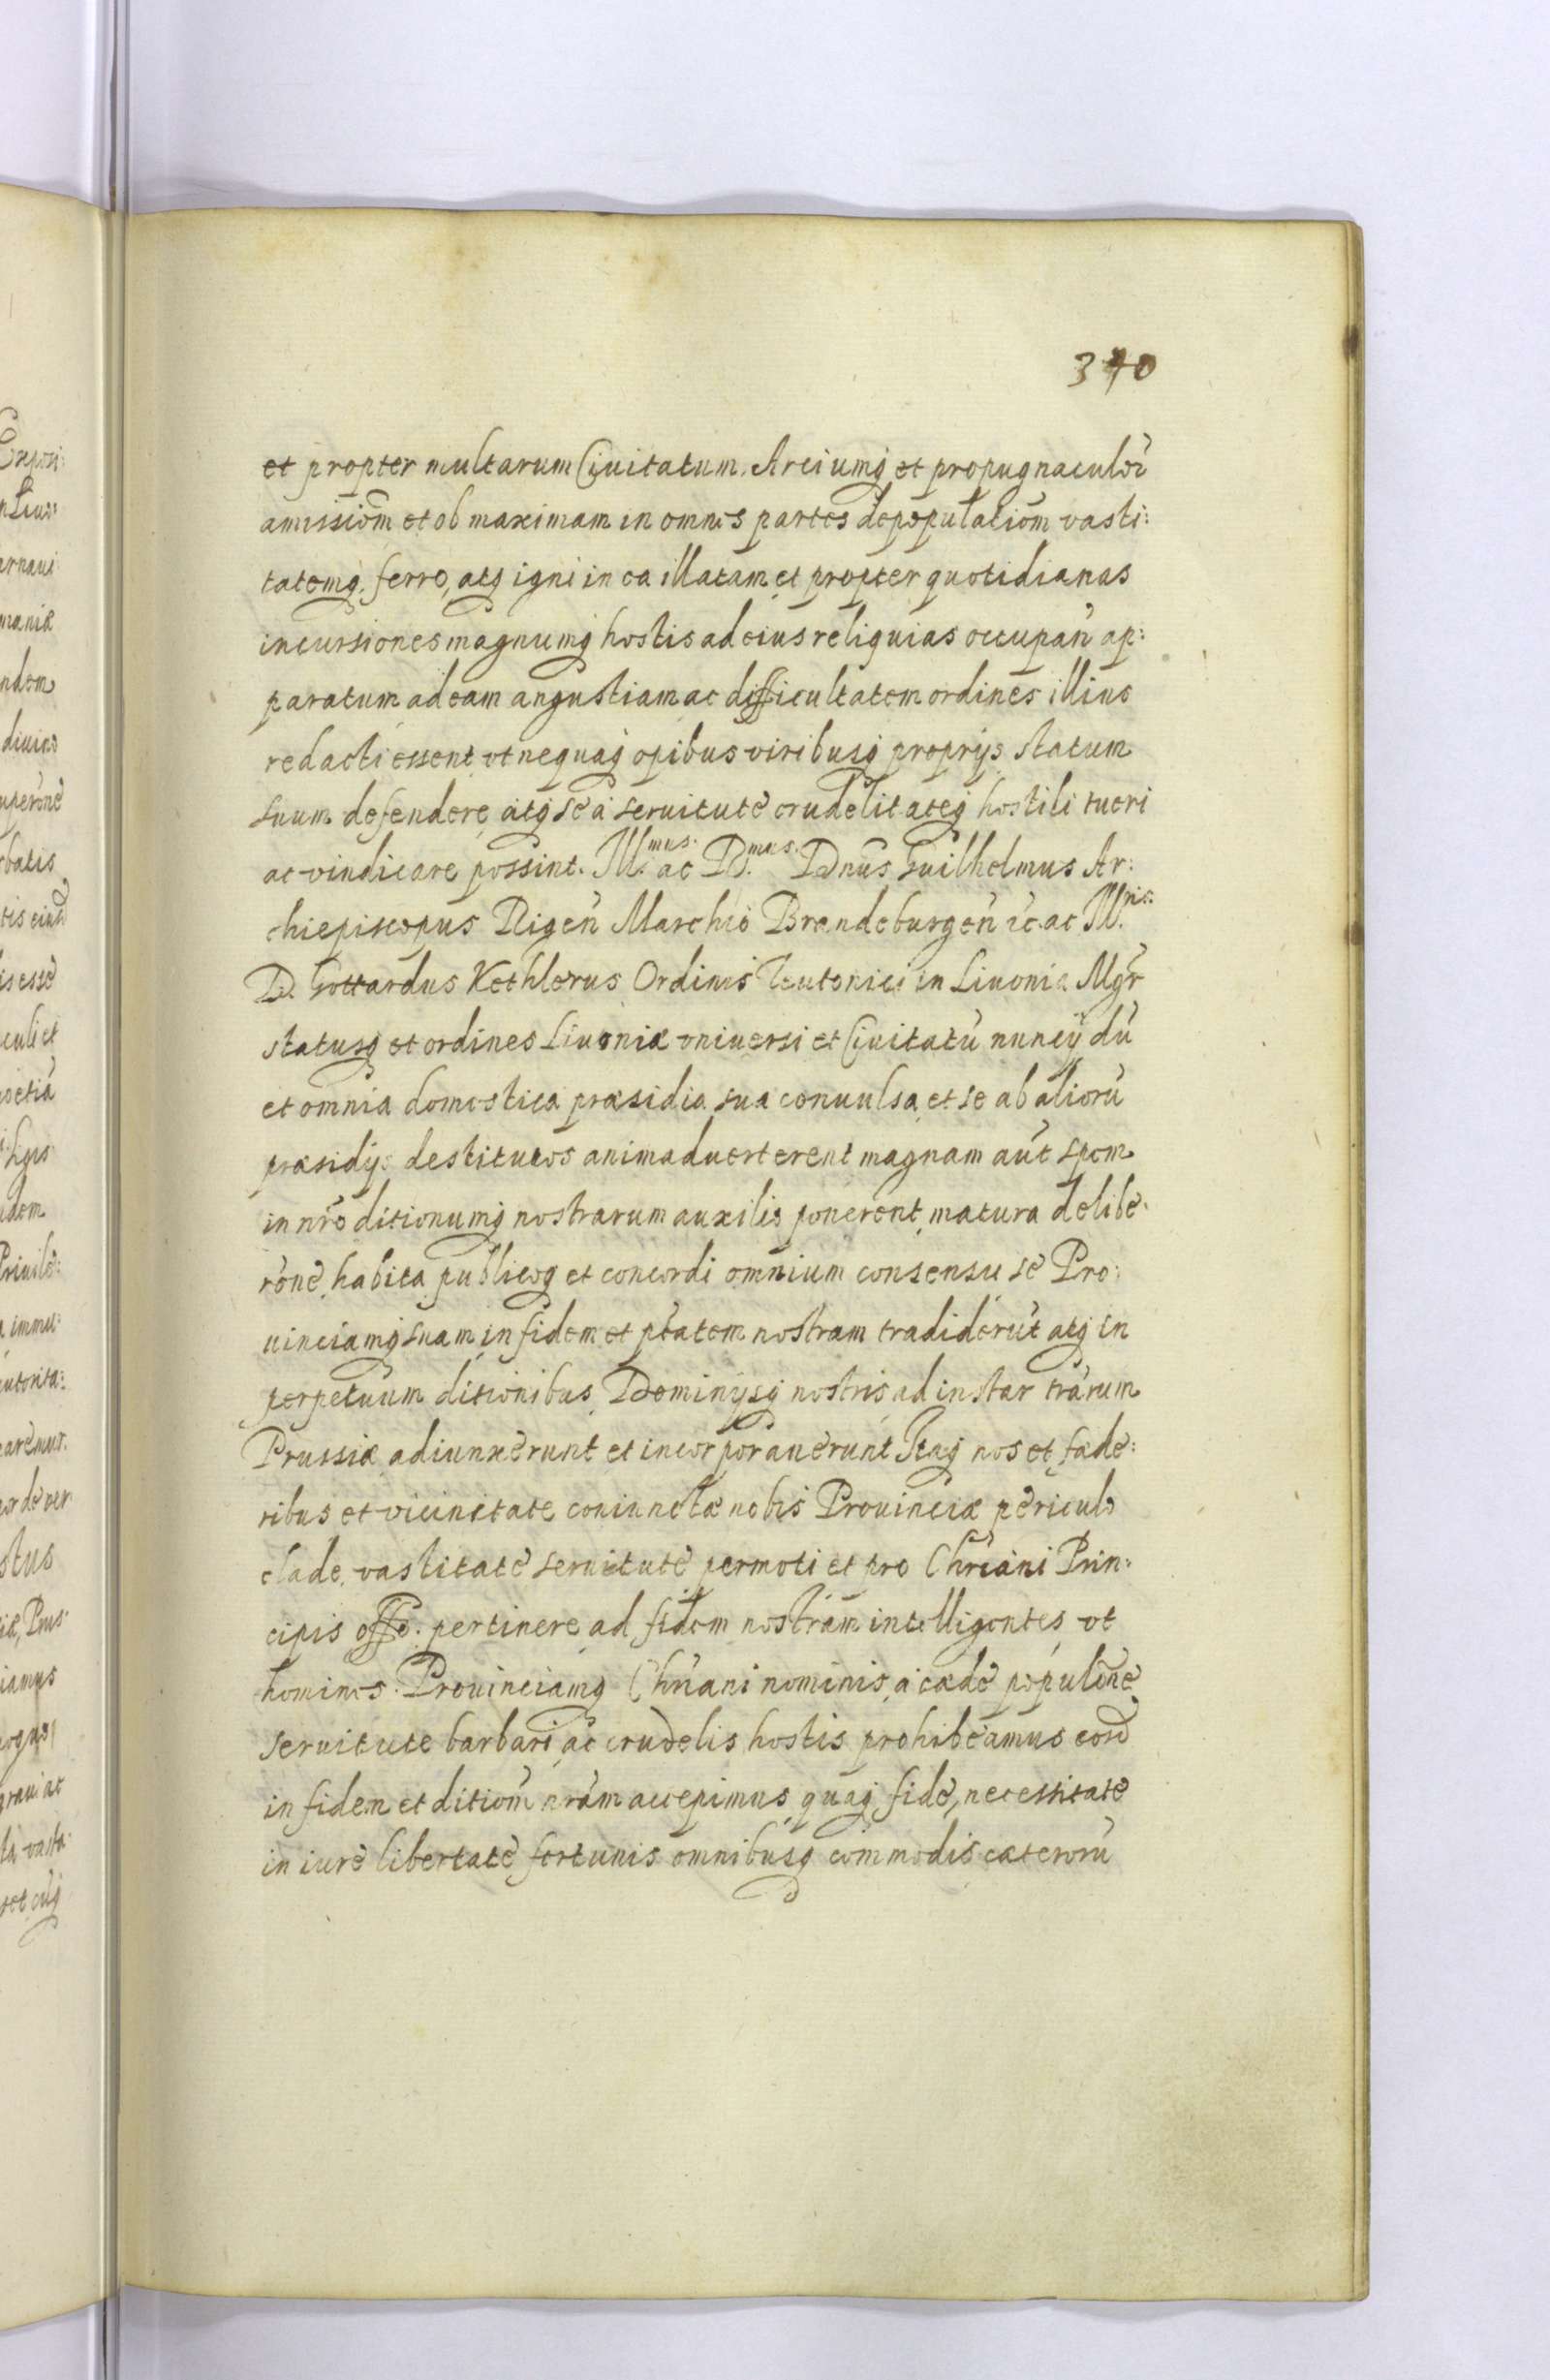 340
et propter multarum Ciuitatum, Arciumq et propugnaculoꝛ
amissiōm et ob maximam in omnes partes depopulatiōm vasti:
tatemq ferro, atq igni in ea illatam et propter quotidianas
incursiones magnumq hostis ad eius reliquias occupañ ap:
paratum ad eam angustiam ac difficultatem ordines illius
redacti essent vt nequaq opibus viribusq proprijs statum
suum defendere atq se à seruitute crudelitateq hostili tueri
ac vindicare possint. Ill.mus ac D.mus Dnūs Guilhelmus Ar:
chiepiscopus Rigeñ Marchio Brandeburgeñ ꝛc. ac Ill.ris
D. Gottardus Kethlerus Ordinis Teutonici in Liuonia Mgr̄
statusq et ordines Liuoniæ vniuersi et Ciuitatū nuncij dū
et omnia domestica præsidia sua conuulsa et se ab alioꝛū
præsidijs destitutos animaduerterent magnam aūt spem
in nr̄o ditionumq nostrarum auxilio ponerent, matura delibe:
rōne habita publicoq et concordi omnium consensu se Pro:
uinciamq suam in fidem et ptātem nostram tradiderūt atq in
perpetuum ditionibus Dominijsq nostris ad instar tr̄arum
Prussiæ adiunxerunt et incorporauerunt Itaq nos et fæde:
ribus et vicinitate coniunctæ nobis Prouinciæ periculo
clade, vastitate seruitute permoti et pro Chrīani Prin:
cipis offo: pertinere ad fidem nostram intelligentes vt
homines Prouinciamq Chrīani nominis à cæde populōne
seruitute barbari ac crudelis hostis prohibeamus eosd
in fidem et ditiōm nr̄am accepimus, quaq fide, necessitate
in iure libertate fortunis omnibusq commodis cæteroꝛū